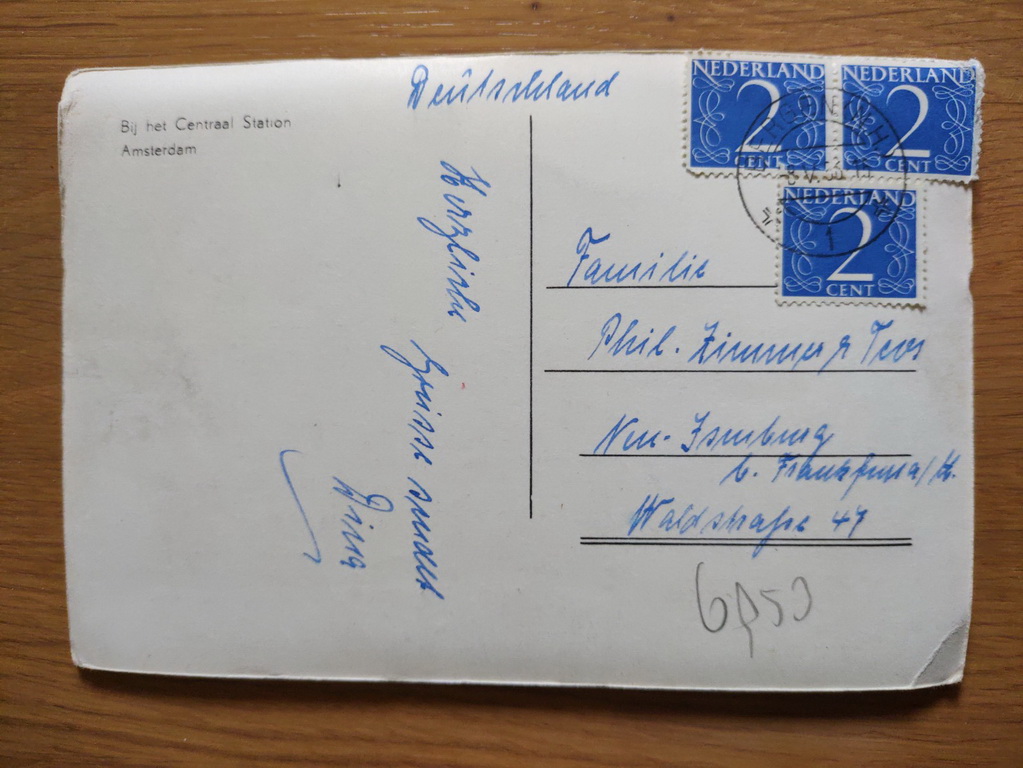 Bij het Centraal Station
Amsterdam
Deutschland
Herzliche Grüsse sendet
NEDERLAND
2
CENT
NEDERLAND
2
CENT
NEDERLAND
2
CENT
1
Familie
Phil. Zimmer
Neu-Isenburg
b. Frankfurt/M.
Waldstraße 47